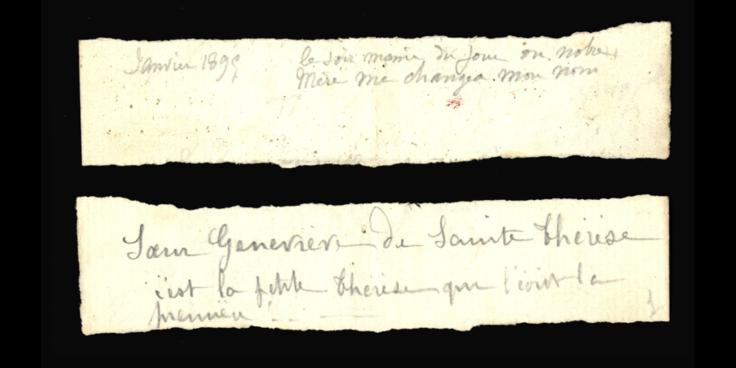 Janvier 1895 le soir même du jour où notre
Mère me changea mon nom
Sœur Geneviève de Sainte Thérèse
c'est la petite Thérèse qui l'écrit la
première !...